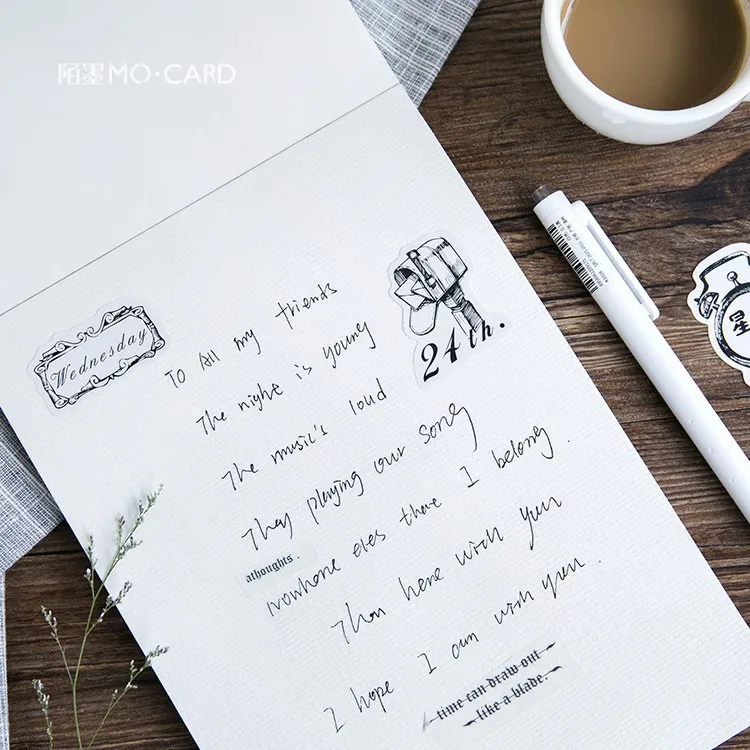 陌墨MO·CARD
Wednesday
24th.
To All my friends
The night is young
The music's loud
They playing our song
Nowhere eles there I belong.
athoughts.
Than here with you
I hope I am with you.
time can draw out
like a blade.
星